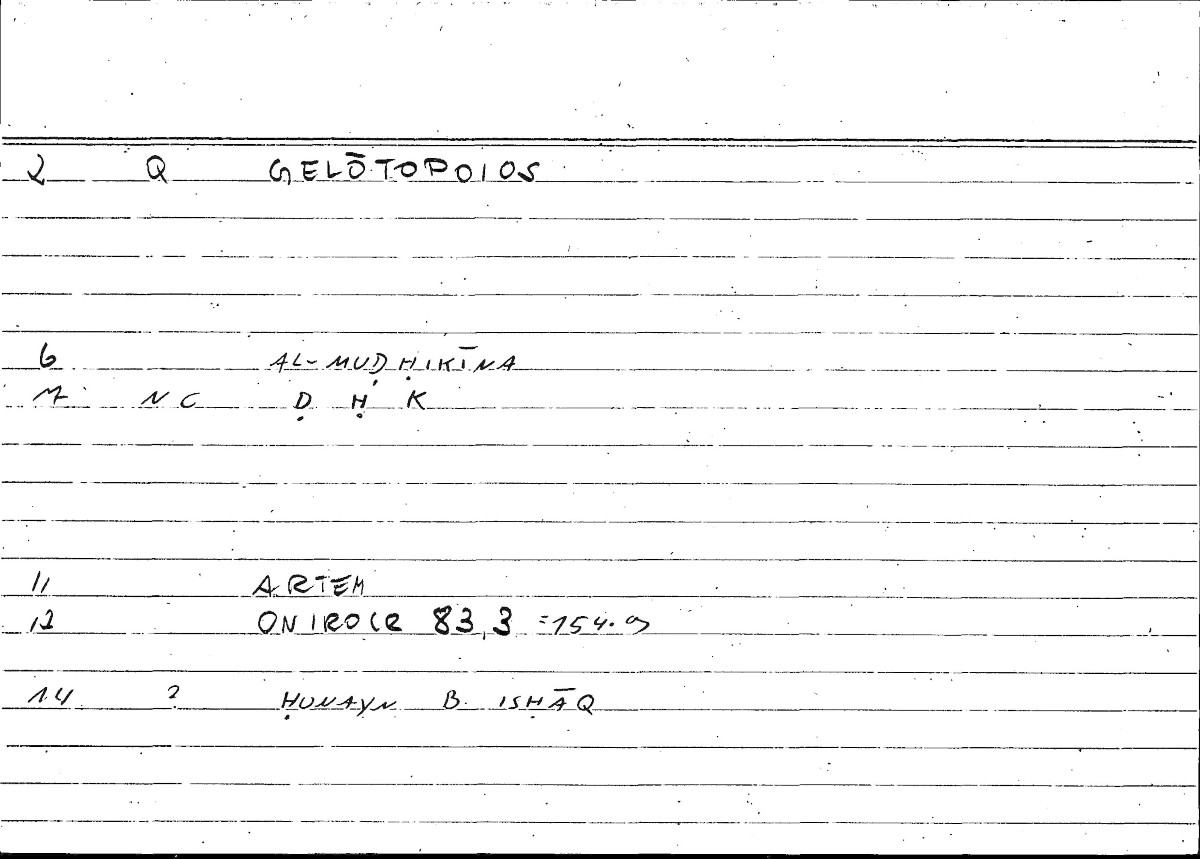 2 Q GELŌTOPOIOS
6 AL-MUḌḤIKĪNA
NC Ḍ Ḥ K
11 ARTEM
12 ONIROCR 83,3 =154.9
14 ? ḤUNAYN B. ISḤĀQ